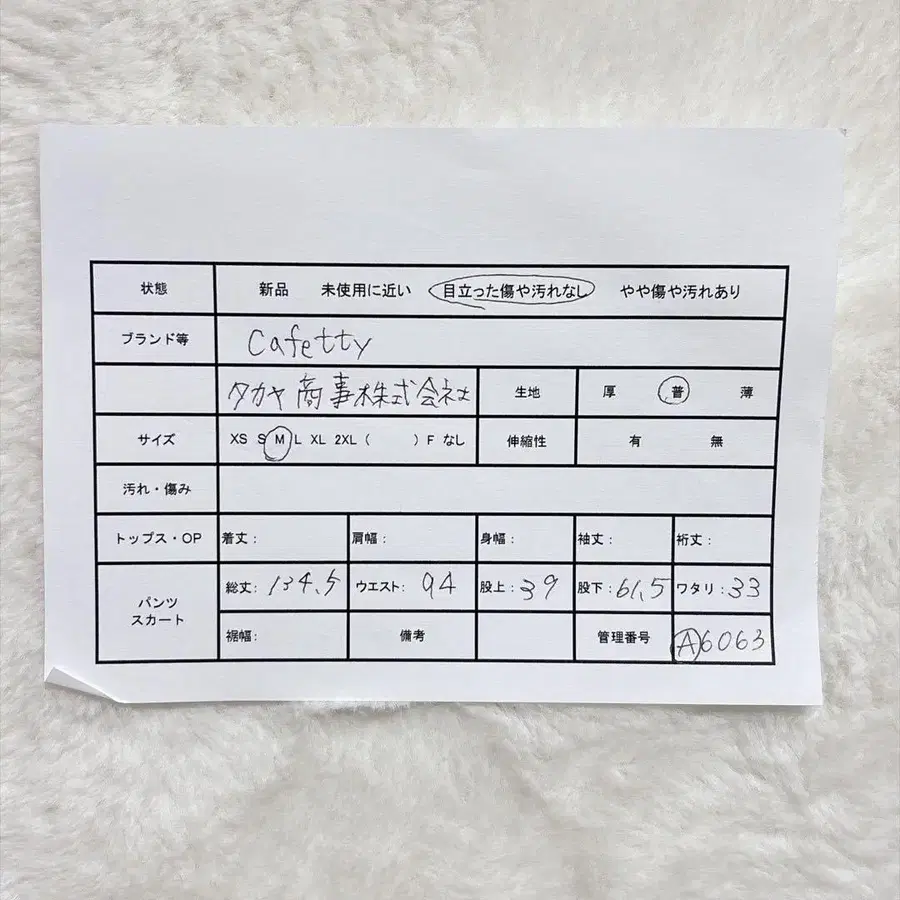 状態 新品 未使用に近い 目立った傷や汚れなし やや傷や汚れあり
ブランド等 Cafetty
タカヤ商事株式会社 生地 厚 普 薄
サイズ XS S M L XL 2XL ( ) F なし 伸縮性 有 無
汚れ・傷み
トップス・OP 着丈: 肩幅: 身幅: 袖丈: 裄丈:
パンツ スカート 総丈: 134.5 ウエスト: 94 股上: 39 股下: 61.5 ワタリ: 33
裾幅: 備考 管理番号 A6063